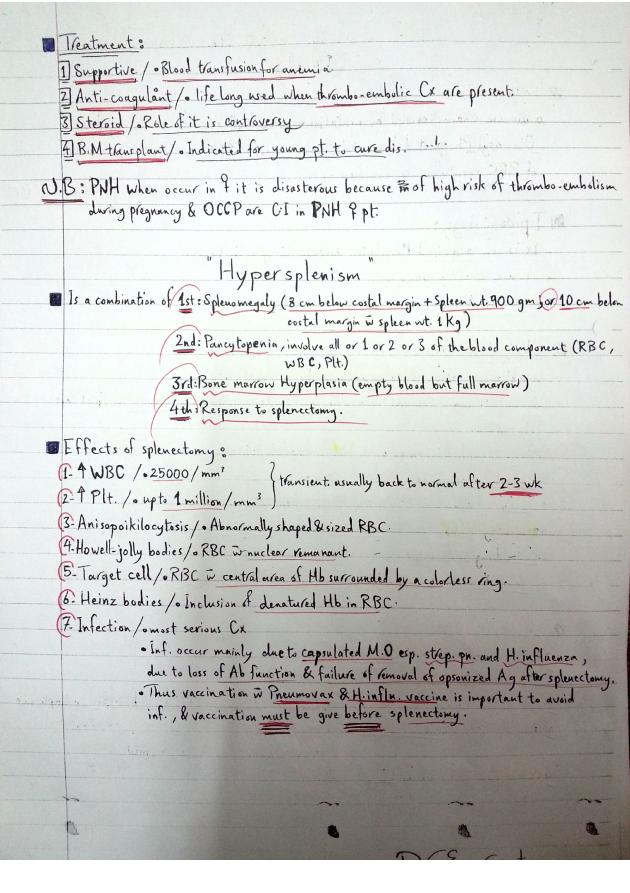 Treatment :
1 Supportive / • Blood transfusion for anemia
2 Anti-coagulant / • life long used when thrombo-embolic Cx are present.
3 Steroid / • Role of it is controversy
4 B.M transplant / • Indicated for young pt. to cure dis.
N.B : PNH when occur in ♀ it is disasterous because of high risk of thrombo-embolism
during pregnancy & OCCP are C.I in PNH ♀ pt.
"Hypersplenism"
Is a combination of 1st: Splenomegaly (8 cm below costal margin + Spleen wt. 900 gm, or 10 cm below
costal margin w̄ spleen wt. 1 Kg)
2nd: Pancytopenia, involve all or 1 or 2 or 3 of the blood component (RBC,
WBC, Plt.)
3rd: Bone marrow Hyperplasia (empty blood but full marrow)
4th: Response to splenectomy.
Effects of splenectomy :
1- ↑ WBC / • 25000/mm³
2- ↑ Plt. / • up to 1 million/mm³ } transient usually back to normal after 2-3 wk
3- Anisopoikilocytosis / • Abnormally shaped & sized RBC.
4- Howell-jolly bodies / • RBC w̄ nuclear remanant.
5- Target cell / • RBC w̄ central area of Hb surrounded by a colorless ring.
6- Heinz bodies / • Inclusion of denatured Hb in RBC.
7- Infection / • most serious Cx
• Inf. occur mainly due to capsulated M.O esp. strep. pn. and H. influenza,
due to loss of Ab function & failure of removal of opsonized Ag after splenectomy.
• Thus vaccination w̄ Pneumovax & H. infln. vaccine is important to avoid
inf., & vaccination must be give before splenectomy.